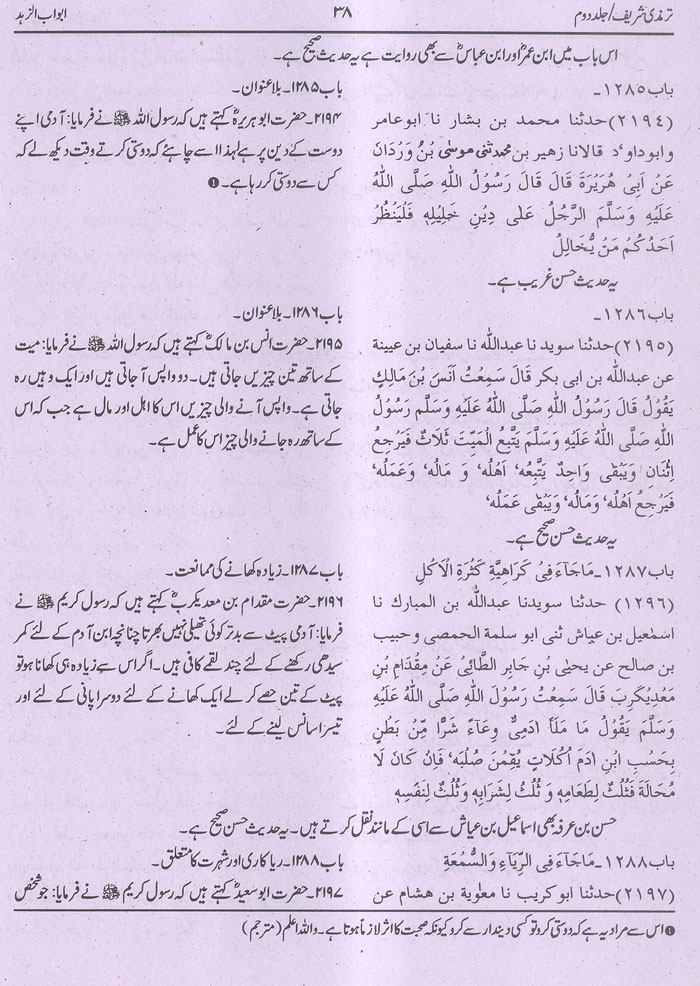 ترمذی شریف/جلد دوم
۳۸
ابواب الزہد
اس باب میں ابن عمرؓ اور ابن عباسؓ سے بھی روایت ہے یہ حدیث صحیح ہے۔
باب ۱۲۸۵۔
(۲۱۹٤) حدثنا محمد بن بشار نا ابوعامر
وابوداو'د قالانا زهير بن محمد ثنی موسٰی بْنُ وَرْدَانَ
عَنْ اَبِیْ هُرَيْرَةَ قَالَ قَالَ رَسُوْلُ اللّٰهِ صَلَّی اللّٰهُ
عَلَيْهِ وَسَلَّمَ الرَّجُلُ عَلٰی دِيْنِ خَلِيْلِهٖ فَلْيَنْظُرْ
اَحَدُكُمْ مَنْ يُّخَالِلُ
باب ۱۲۸۵۔ بلاعنوان۔
۲۱۹۴۔ حضرت ابوہریرہؓ کہتے ہیں کہ رسول اللہ ﷺ نے فرمایا: آدمی اپنے
دوست کے دین پر ہے لہٰذا اسے چاہئے کہ دوستی کرتے وقت دیکھ لے کہ
کس سے دوستی کر رہا ہے۔ ❶
یہ حدیث حسن غریب ہے۔
باب ۱۲۸۶۔
(۲۱۹۵) حدثنا سويد نا عبدالله نا سفيان بن عيينة
عن عبدالله بن ابی بكر قَالَ سَمِعْتُ اَنَسَ بْنَ مَالِكٍ
يَقُوْلُ قَالَ رَسُوْلُ اللّٰهِ صَلَّی اللّٰهُ عَلَيْهِ وَسَلَّمَ رَسُوْلُ
اللّٰهِ صَلَّی اللّٰهُ عَلَيْهِ وَسَلَّمَ يَتْبَعُ الْمَيِّتَ ثَلَاثٌ فَيَرْجِعُ
اِثْنَانِ وَيَبْقٰی وَاحِدٌ يَتْبَعُه' اَهْلُه' وَ مَالُه' وَعَمَلُه'
فَيَرْجِعُ اَهْلُه' وَمَالُه' وَيَبْقٰی عَمَلُه'
باب ۱۲۸۶۔ بلاعنوان۔
۲۱۹۵۔ حضرت انس بن مالکؓ کہتے ہیں کہ رسول اللہ ﷺ نے فرمایا: میت
کے ساتھ تین چیزیں جاتی ہیں۔ دو واپس آ جاتی ہیں اور ایک وہیں رہ
جاتی ہے۔ واپس آنے والی چیزیں اس کا اہل اور مال ہے جب کہ اس
کے ساتھ رہ جانے والی چیز اس کا عمل ہے۔
یہ حدیث حسن صحیح ہے۔
باب ۱۲۸۷۔ مَاجَآءَ فِیْ كَرَاهِيَّةِ كَثْرَةِ الْاَكْلِ
(۱۲۹٦) حدثنا سويدنا عبدالله بن المبارك نا
اسمٰعيل بن عياش ثنی ابو سلمة الحمصی وحبيب
بن صالح عن يحيٰی بْنِ جَابِرِ الطَّائِیِّ عَنْ مِقْدَامِ بْنِ
مَعْدِيْكَرِبَ قَالَ سَمِعْتُ رَسُوْلَ اللّٰهِ صَلَّی اللّٰهُ عَلَيْهِ
وَسَلَّمَ يَقُوْلُ مَا مَلَاَ اٰدَمِیٌّ وِعَآءً شَرًّا مِّنْ بَطْنٍ
بِحَسْبِ ابْنِ اٰدَمَ اُكُلَاتٌ يُقِمْنَ صُلْبَه' فَاِنْ كَانَ لَا
مُحَالَةَ فَثُلُثٌ لِطَعَامِهٖ وَ ثُلُثٌ لِشَرَابِهٖ وَ ثُلُثٌ لِنَفَسِهٖ
باب ۱۲۸۷۔ زیادہ کھانے کی ممانعت۔
۲۱۹۶۔ حضرت مقدام بن معدیکربؓ کہتے ہیں کہ رسول کریم ﷺ نے
فرمایا: آدمی پیٹ سے بدتر کوئی تھیلی نہیں بھرتا چنانچہ ابن آدم کے لئے کمر
سیدھی رکھنے کے لئے چند لقمے کافی ہیں۔ اگر اس سے زیادہ ہی کھانا ہو تو
پیٹ کے تین حصے کر لے ایک کھانے کے لئے دوسرا پانی کے لئے اور
تیسرا سانس لینے کے لئے۔
حسن بن عرفہ بھی اسماعیل بن عیاش سے اسی کے مانند نقل کرتے ہیں۔ یہ حدیث حسن صحیح ہے۔
باب ۱۲۸۸۔ مَاجَآءَ فِی الرِّيَآءِ وَالسُّمْعَةِ
(۲۱۹۷) حدثنا ابو كريب نا معٰوية بن هشام عن
باب ۱۲۸۸۔ ریا کاری اور شہرت کا متعلق۔
۲۱۹۷۔ حضرت ابو سعیدؓ کہتے ہیں کہ رسول کریم ﷺ نے فرمایا: جو شخص
❶ اس سے مراد یہ ہے کہ دوستی کرو تو کسی دیندار سے کرو کیونکہ صحبت کا اثر لازماً ہوتا ہے۔ واللہ اعلم (مترجم)